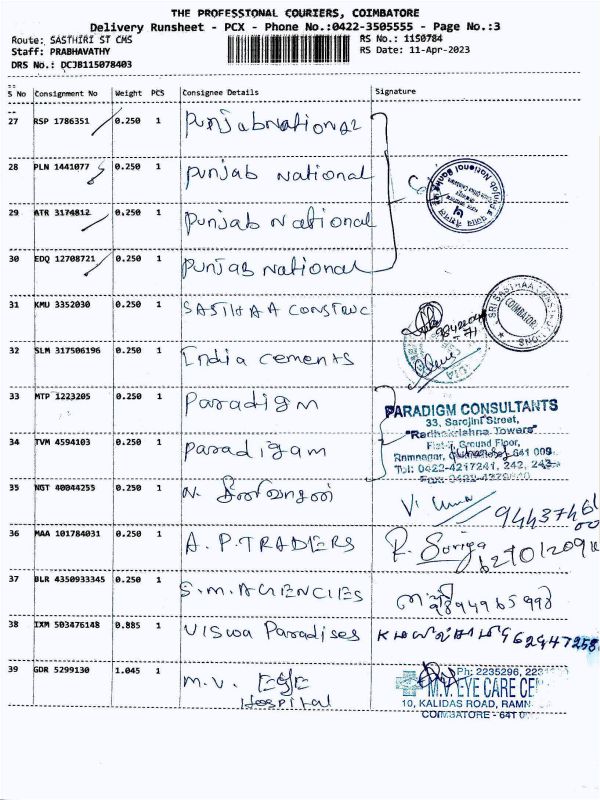 THE PROFESSIONAL COURIERS, COIMBATORE
Delivery Runsheet - PCX - Phone No.:0422-3505555 - Page No.:3
Route: SASTHIRI ST CMS RS No.: 1150784
Staff: PRABHAVATHY RS Date: 11-Apr-2023
DRS No.: DCJB115078403
S No Consignment No Weight PCS Consignee Details Signature
27 RSP 1786351 0.250 1 Punjab National
28 PLN 1441077 0.250 1 Punjab National
29 ATR 3174812 0.250 1 Punjab National
30 EDQ 12708721 0.250 1 Punjab National
31 KMU 3352030 0.250 1 SASTHAA CONSTRUC
SRI SASTHAA CONSTRUCTIONS
COIMBATORE
32 SLM 317506196 0.250 1 India cements
33 MTP 1223205 0.250 1 Paradigm
PARADIGM CONSULTANTS
33, Sarojini Street,
"Radhakrishna Towers"
34 TVM 4594103 0.250 1 Paradigam
Ground Floor,
Ramnagar, 641 009
Tel: 0422-4217241, 242, 243
35 NGT 40044255 0.250 1 N.
V. Uma
36 MAA 101784031 0.250 1 A. P. TRADERS R. Suriya
37 BLR 4350933345 0.250 1 S.M. AGENCIES
38 IXM 503476148 0.885 1 Viswa Paradises
39 GDR 5299130 1.045 1 M.V. EYE
Hospital
Ph: 2235296,
M.V. EYE CARE CE
10, KALIDAS ROAD, RAMN
COIMBATORE - 641 0